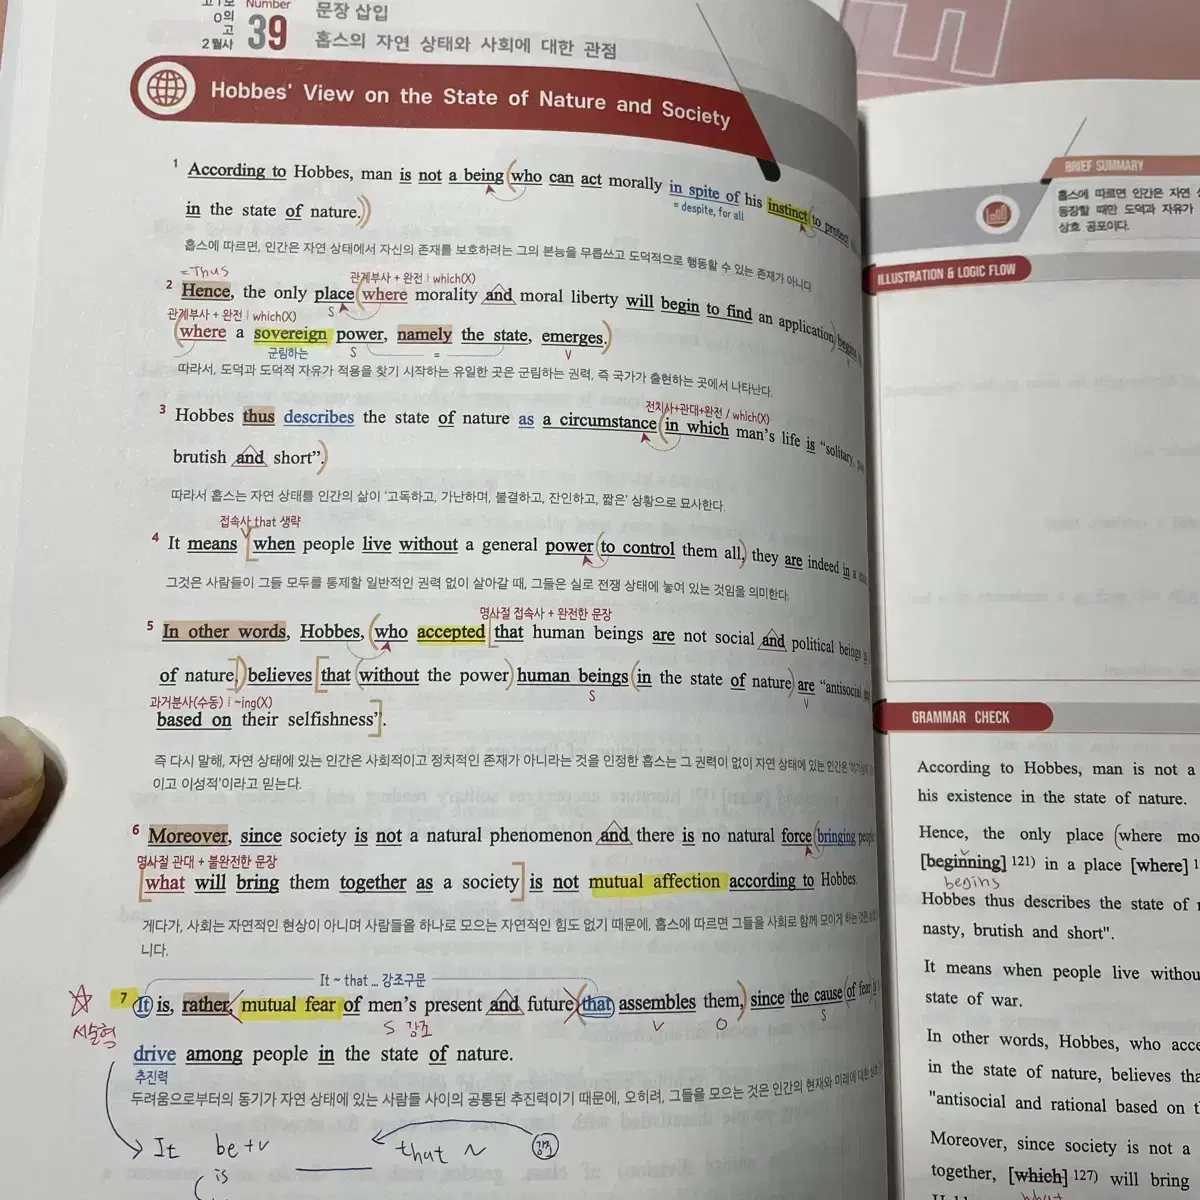 0의
고
2월사
Number
39
문장 삽입
홉스의 자연 상태와 사회에 대한 관점
Hobbes' View on the State of Nature and Society
1 According to Hobbes, man is not a being who can act morally in spite of his instinct to protect
= despite, for all
in the state of nature.
홉스에 따르면, 인간은 자연 상태에서 자신의 존재를 보호하려는 그의 본능을 무릅쓰고 도덕적으로 행동할 수 있는 존재가 아니다
=Thus
관계부사 + 완전 | which(X)
2 Hence, the only place where morality and moral liberty will begin to find an application begins
S
관계부사 + 완전 | which(X)
where a sovereign power, namely the state, emerges.
군림하는 S = V
따라서, 도덕과 도덕적 자유가 적용을 찾기 시작하는 유일한 곳은 군림하는 권력, 즉 국가가 출현하는 곳에서 나타난다.
전치사+관대+완전 / which(X)
3 Hobbes thus describes the state of nature as a circumstance in which man's life is "solitary,
brutish and short".
따라서 홉스는 자연 상태를 인간의 삶이 '고독하고, 가난하며, 불결하고, 잔인하고, 짧은' 상황으로 묘사한다.
접속사 that 생략
4 It means when people live without a general power to control them all, they are indeed in a
그것은 사람들이 그들 모두를 통제할 일반적인 권력 없이 살아갈 때, 그들은 실로 전쟁 상태에 놓여 있는 것임을 의미한다.
명사절 접속사 + 완전한 문장
5 In other words, Hobbes, who accepted that human beings are not social and political beings
of nature, believes that without the power human beings in the state of nature are "antisocial
S V
과거분사(수동) | ~ing(X)
based on their selfishness".
즉 다시 말해, 자연 상태에 있는 인간은 사회적이고 정치적인 존재가 아니라는 것을 인정한 홉스는 그 권력이 없이 자연 상태에 있는 인간은
이고 이성적'이라고 믿는다.
6 Moreover, since society is not a natural phenomenon and there is no natural force bringing people
명사절 관대 + 불완전한 문장
what will bring them together as a society is not mutual affection according to Hobbes.
게다가, 사회는 자연적인 현상이 아니며 사람들을 하나로 모으는 자연적인 힘도 없기 때문에, 홉스에 따르면 그들을 사회로 함께 모이게 하는 것은
니다.
It ~ that ... 강조구문
7 It is, rather, mutual fear of men's present and future that assembles them, since the cause of fear
서술형
S 강조 V O S
drive among people in the state of nature.
추진력
두려움으로부터의 동기가 자연 상태에 있는 사람들 사이의 공통된 추진력이기 때문에, 오히려, 그들을 모으는 것은 인간의 현재와 미래에 대한
It be+v that ~ 강조
is
BRIEF SUMMARY
홉스에 따르면 인간은 자연
등장할 때만 도덕과 자유가
상호 공포이다.
ILLUSTRATION & LOGIC FLOW
GRAMMAR CHECK
According to Hobbes, man is not a
his existence in the state of nature.
Hence, the only place (where mo
[beginning] 121) in a place [where]
begins
Hobbes thus describes the state of
nasty, brutish and short".
It means when people live withou
state of war.
In other words, Hobbes, who acce
in the state of nature, believes tha
"antisocial and rational based on t
Moreover, since society is not a
together, [which] 127) will bring